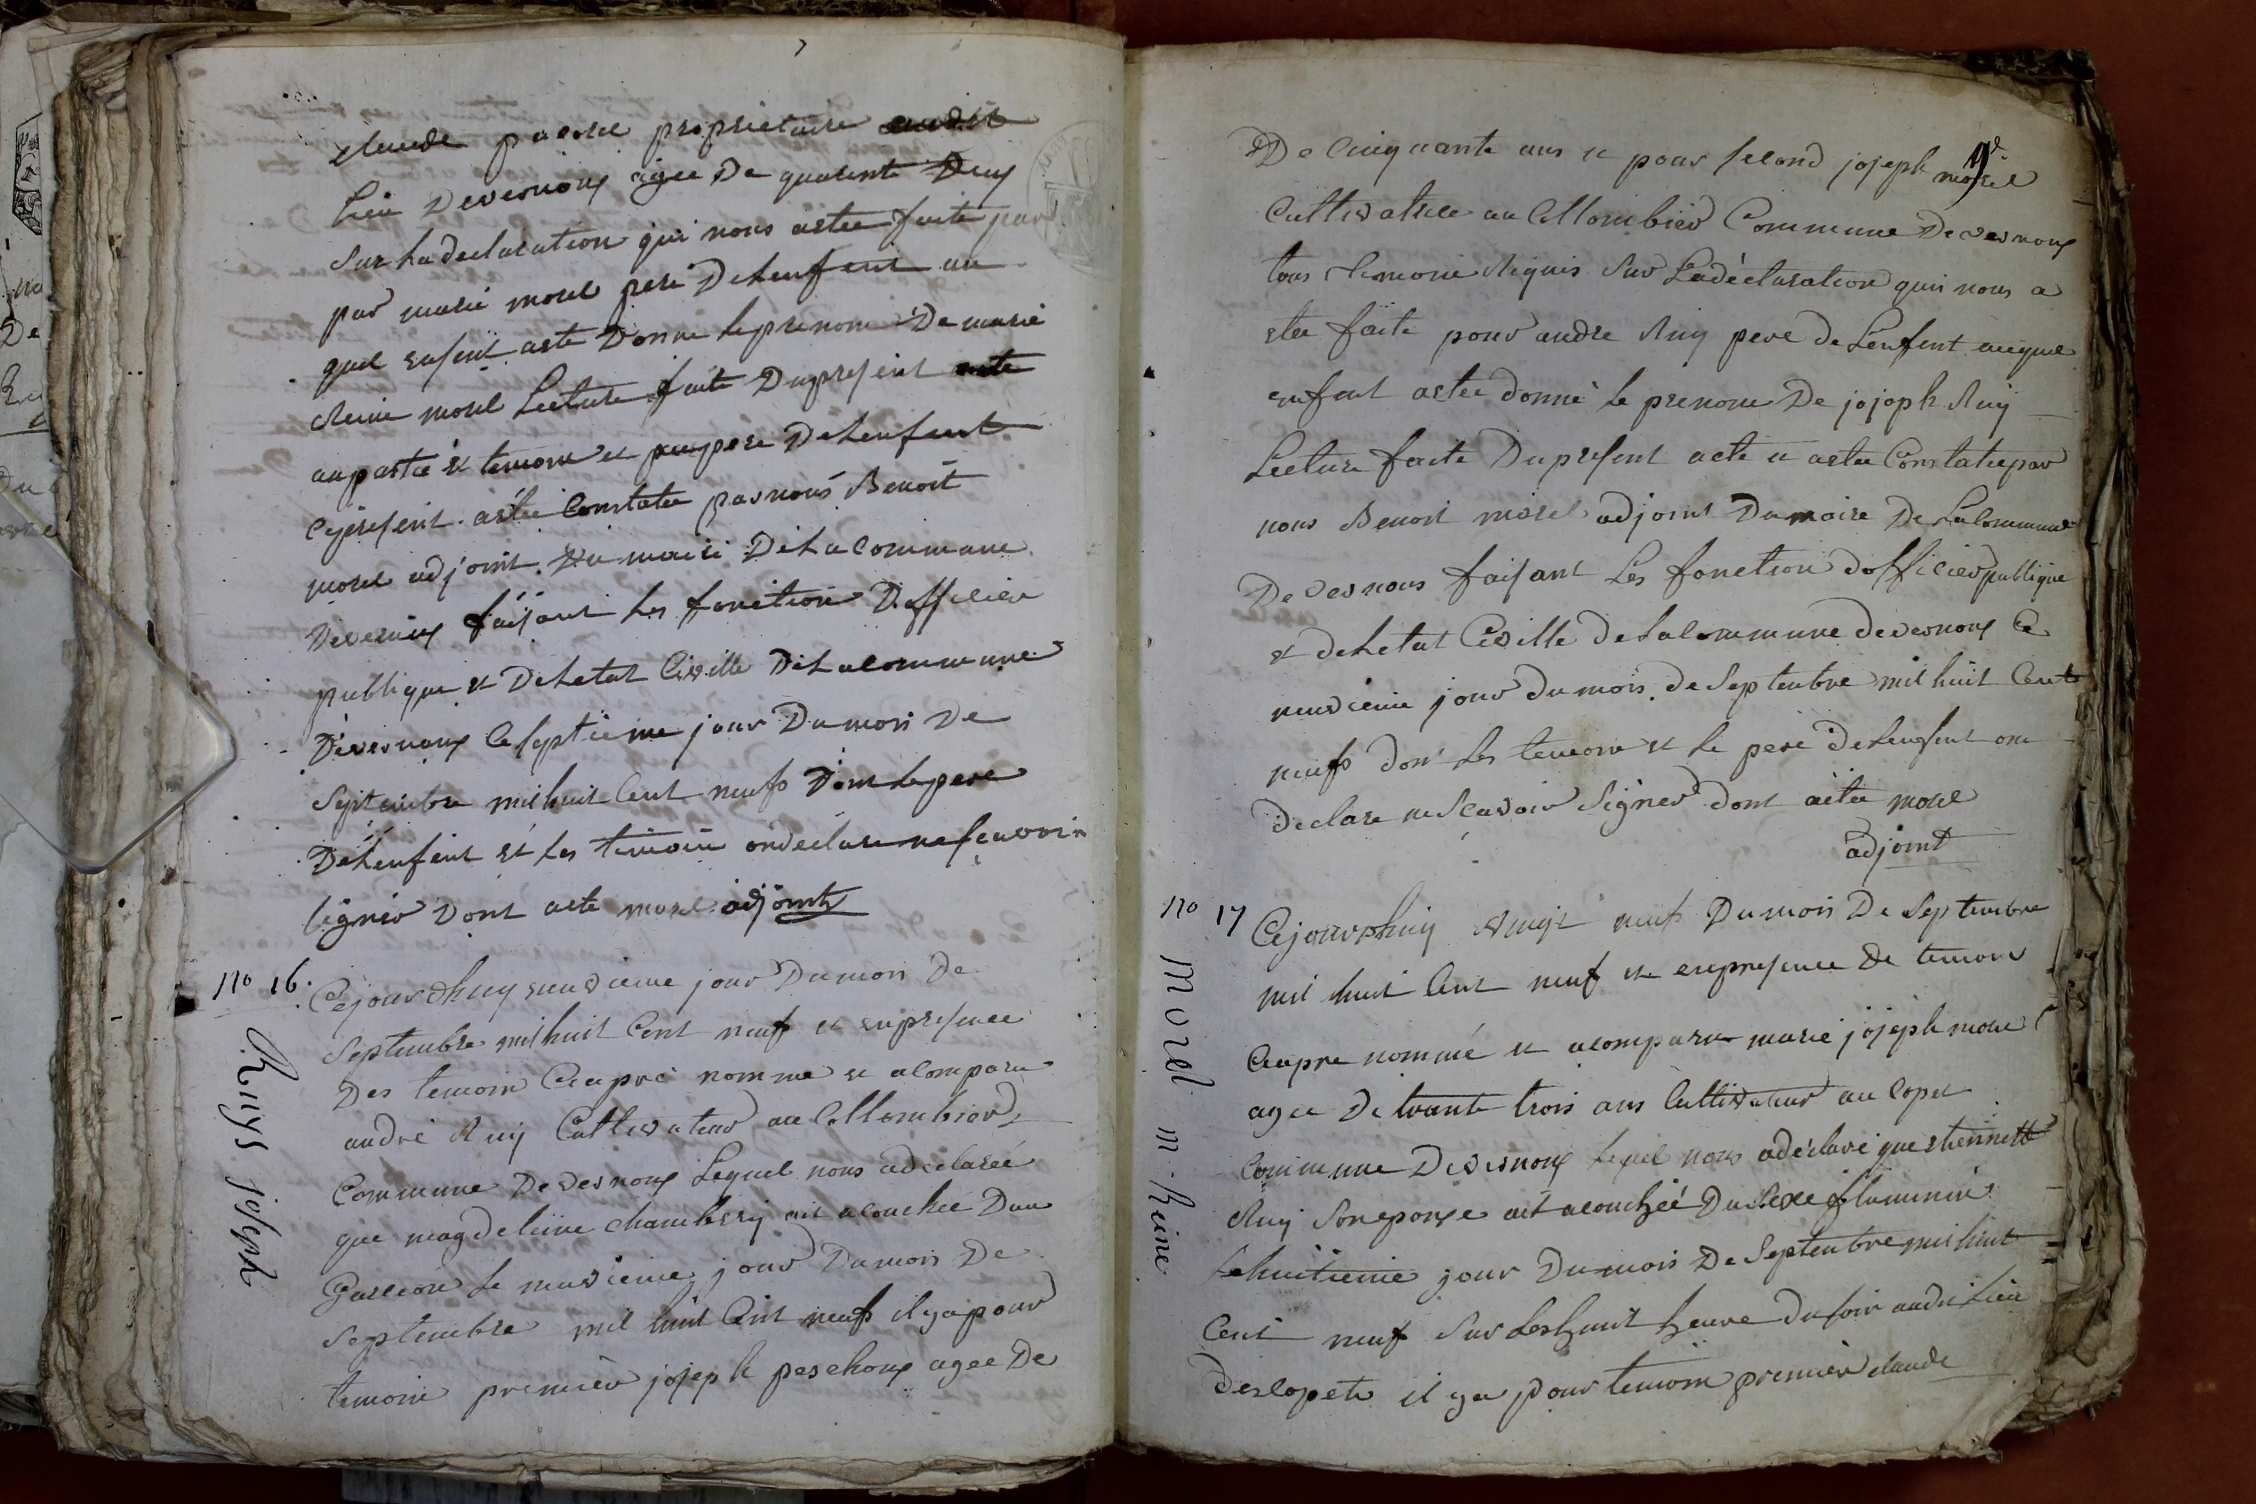 claude pacorel proprietaire audit
lieu Devernoux agee De quarente Deuy
Sur La declaration qui nous astee faite par
par marie morel pere De Lenfent au
quel enfent aste Donne le prenom De marie
Reine morel Lecture faite Du present acte
au partie et temoin et au pere De Lenfent
Ce present astée Constatée par nous Benoit
morel adjoint Du maire De La Commune
De vernoux faisant les fonction D officier
publique et De Letat Civille De La Commune
De vernoux le septieme jour Du mois De
Septembre mil huit Cent neufs Dont le pere
De Lenfent et les temoin on declare ne scavoir
signer Dont acte morel adjoint
no 16.
Ruys joseph
Cejourdhuy neuvieme jour Du mois De
Septembre mil huit Cent neuf et en presence
Des temoin Ciapré nomme et a Comparu
andré Ruy Cultivateur au Collombier
Commune De vernoux Lequel nous a declarée
que magdeleine Chambery est acouchée Dun
Garcon le neuvieme jour Du mois De
Septembre mil huit Cent neufs il y a pour
temoin premier joseph peschoux agee De
De Cinquante ans et pour second joseph morel
Cultivatice au Collombier Commune De vernoux
tous temoin Requis Sur La déclaration qui nous a
etée faite pour andre Ruy pere de Lenfent auquel
enfent astée donné le prenom De joseph Ruy
Lecture faite Du present acte et astée Constatée par
nous Benoit morel adjoint Du maire De La Commune
De vernoux faisant Les fonction dofficier publique
et de Letat Civille de La Commune de vernoux Ce
neuvieme jour du mois de Septembre mil huit Cent
neufs dont les temoin et le pere de Lenfent on
declare ne Scavoir Signer dont acte morel
adjoint
no 17
Morel m. Reine
Cejourdhuy vingt neufs Du mois De Septembre
mil huit Cent neuf et en presence De temoin
Ciapre nommé et a comparu marie joseph morel
agee De trante trois ans Cultivateur au Copet
Commune De vernoux lequel nous a déclaré que etiennette
Ruy Son epouse est acouchéé Du Sexe
le huitieme jour Du mois De Septembre mil huit
Cent neuf Sur Les huit heure du soir audit Lieu
des Copets il y a pour temoin premier claude